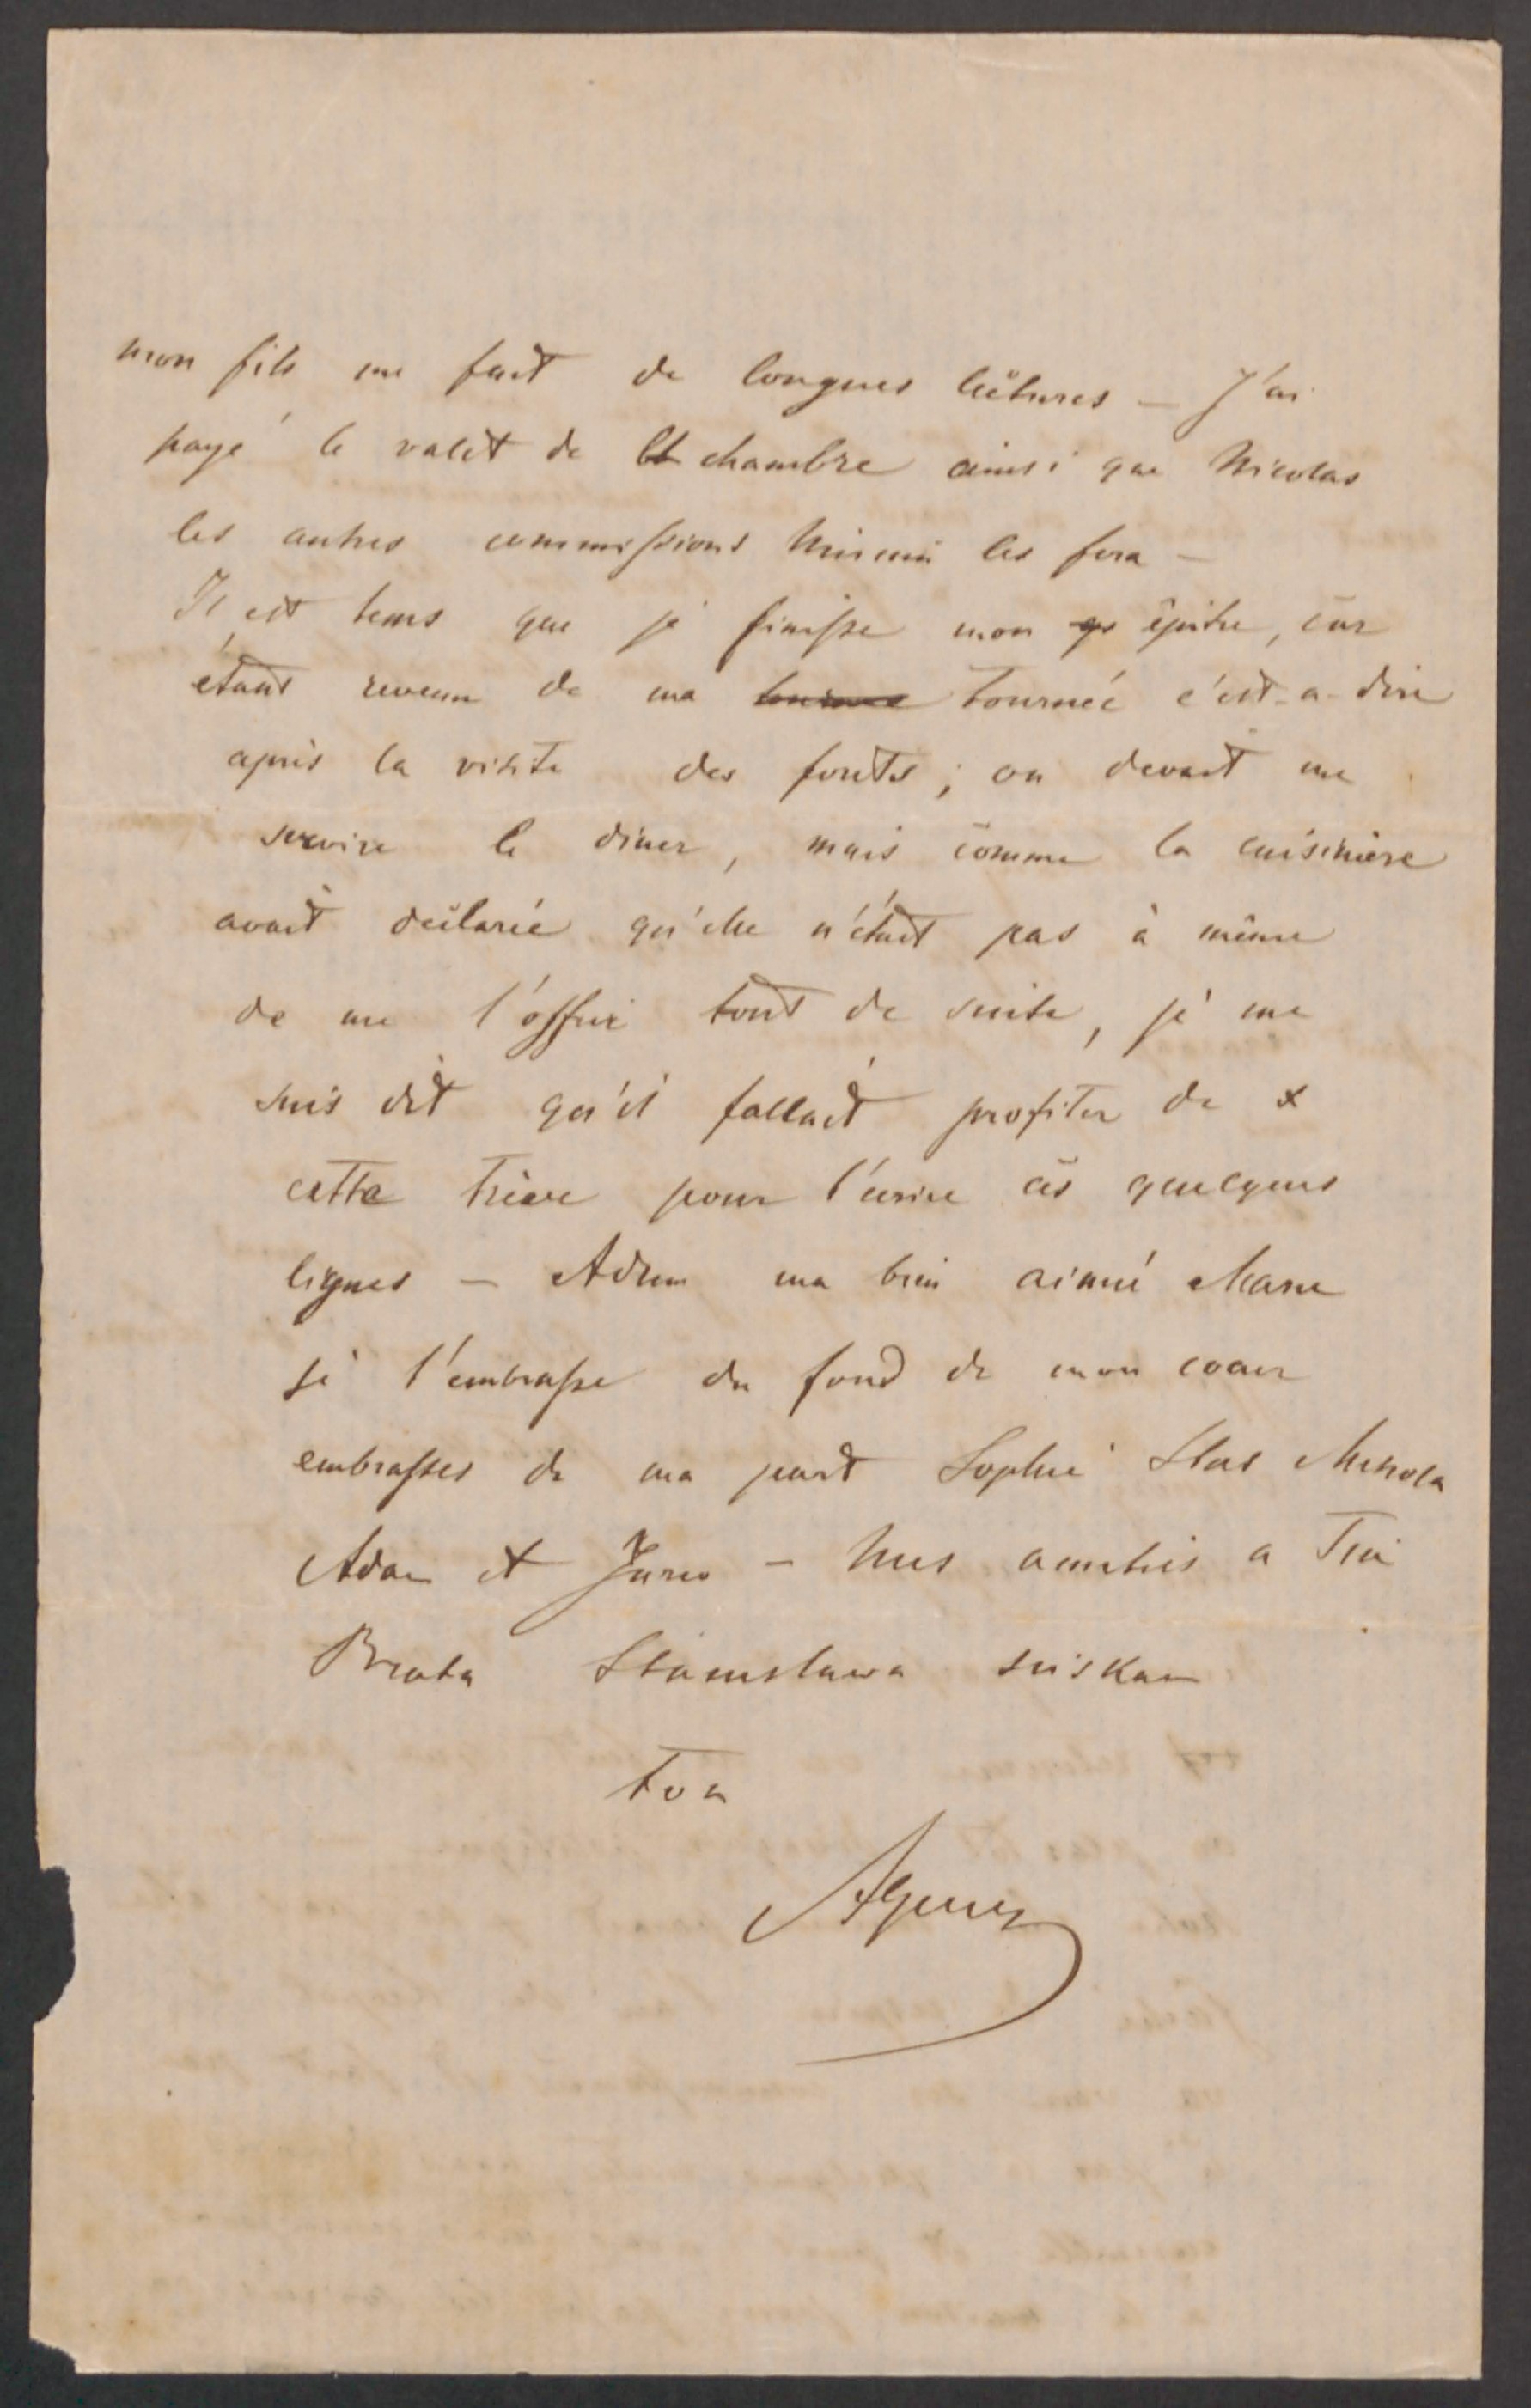 mon fils me fait de longues lectures — J'ai
payé le valet de chambre ainsi que Nicolas
les autres commissions les fera —
Il est tems que je finisse mon épitre, car
étant revenu de ma tournée c'est-a-dire
après la visite des forêts ; on devait me
servire le diner, mais comme la cuisinière
avait déclarée qu'elle n'était pas à même
de me l'offrir tout de suite, je me
suis dit qu'il fallait profiter de
cette trève pour t'ecrire ces quelques
lignes — Adieu ma bien aimé Marie
je t'embrasse du fond de mon coeur
embrasses de ma part Sophie Stas
Adam et — Mes amitiés a
Brata Stanisława sciskam
ton